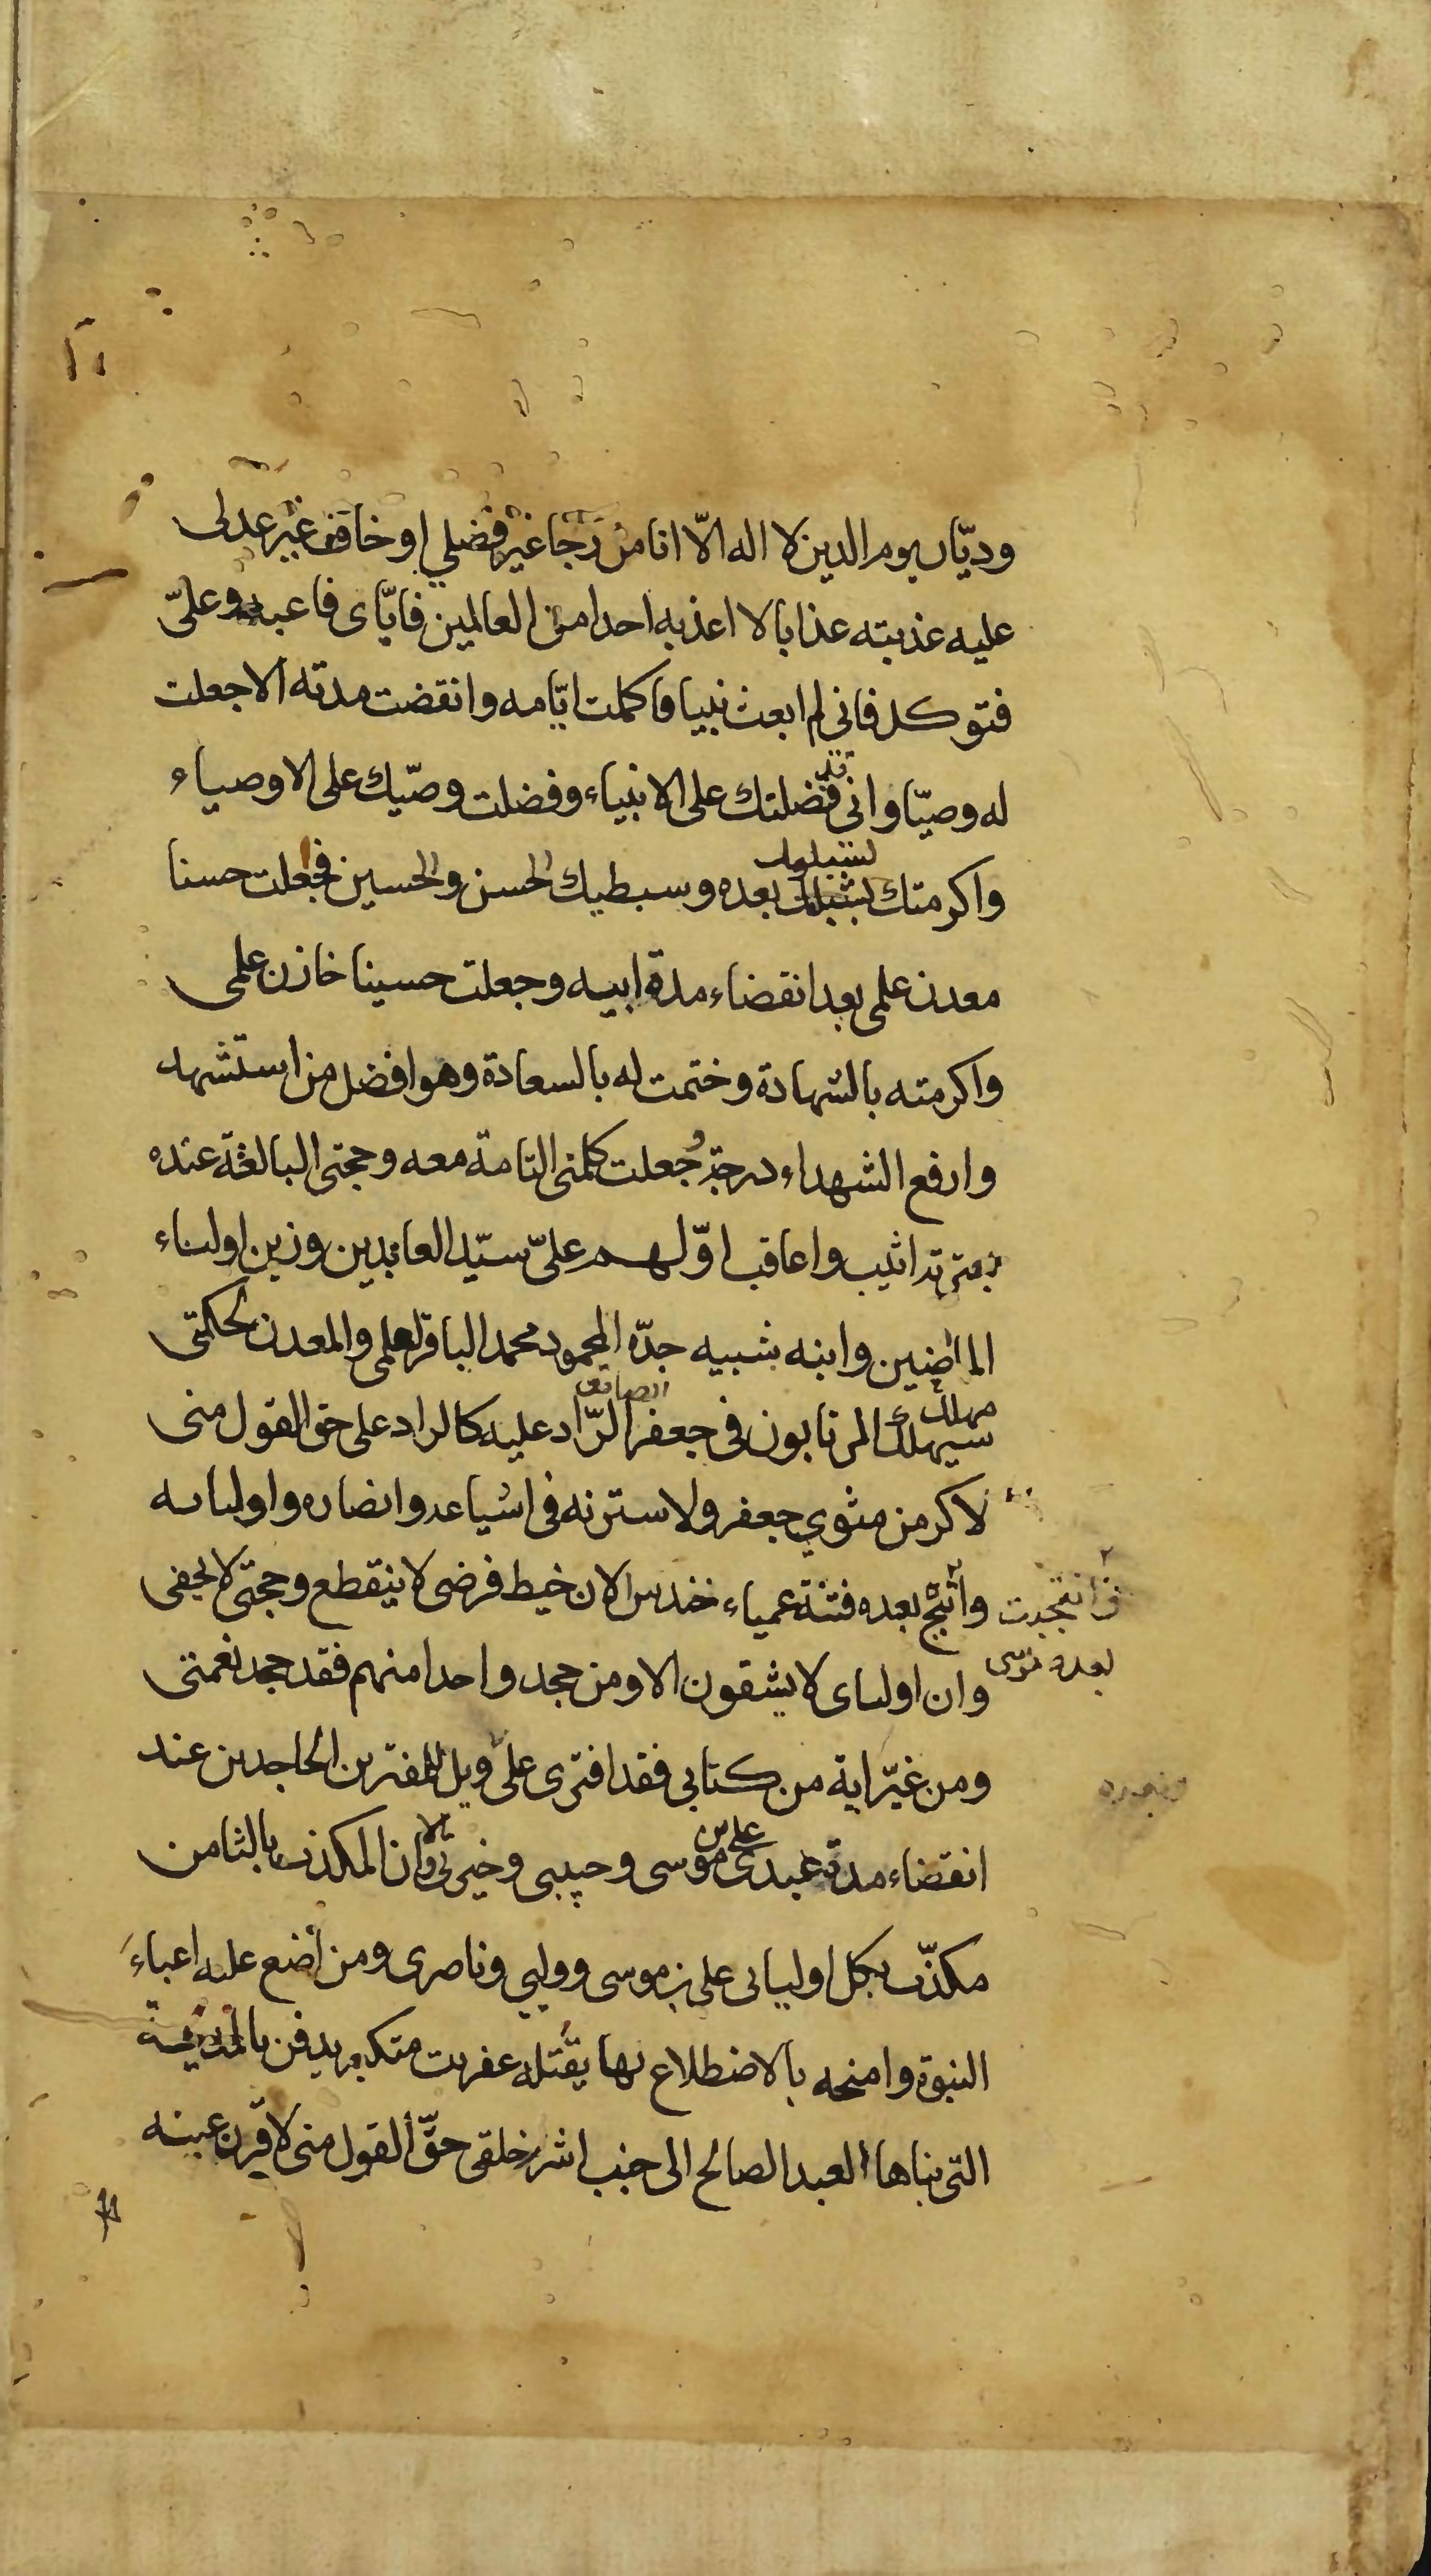 وديّان يوم الدين لا اله الّا انا من رجا غير فضلي او خاف غير عدلى
عليه عذبته عذابا لا اعذبه احدا من العالمين فايّاى فاعبد وعلىّ
فتوكل فانى لم ابعث نبيا فاكملت ايّامه وانقضت مدته الا جعلت
له وصيّا وانى فضلتك على الانبياء وفضلت وصيّك على الاوصياء
واكرمتك بشبليك بعده وسبطيك الحسن والحسين فجعلت حسنا
معدن علمى بعد انقضاء مدة ابيه وجعلت حسينا خازن علمى
واكرمته بالشهادة وختمت له بالسعادة وهو افضل من استشهد
وارفع الشهداء درجة جعلت كلمتى التامة معه وحجتى البالغة عنده
بعترته اثيب واعاقب اوّلهم علىّ سيّد العابدين وزين اولياء
الماضنين وابنه شبيه جدّه المحمود محمد الباقر لعلمى والمعدن لحكمتى
سيهلك المرتابون فى جعفر الصادق الرّاد عليه كالراد على حق القول منى
لاكرمن مثوي جعفر ولاسترنه فى اشياعه وانصاره واوليائه
وأتيح بعده فتنة عمياء حندس لان خيط فرضى لا ينقطع وحجتى لا يخفى
فانتجبت
بعده موسى
وان اولياى لا يشقون الا ومن جحد واحدا منهم فقد جحد نعمتى
ومن غيّر اية من كتابى فقد افترى علىّ ويل للمفترين الجاحدين عند
انقضاء مدة عبدى موسى وحبيبى وخيرتى الا وان المكذب بالثامن
مكذّب بكل اوليائى على بن موسى ووليي وناصرى ومن أضع عليه اعباءَ
النبوة وامنحه بالاضطلاع بها يقتله عفريت متكبر يدفن بالمدينة
التى بناها العبد الصالح الى جنب اشر خلقى حقّ القول منى لاقرّن عينه